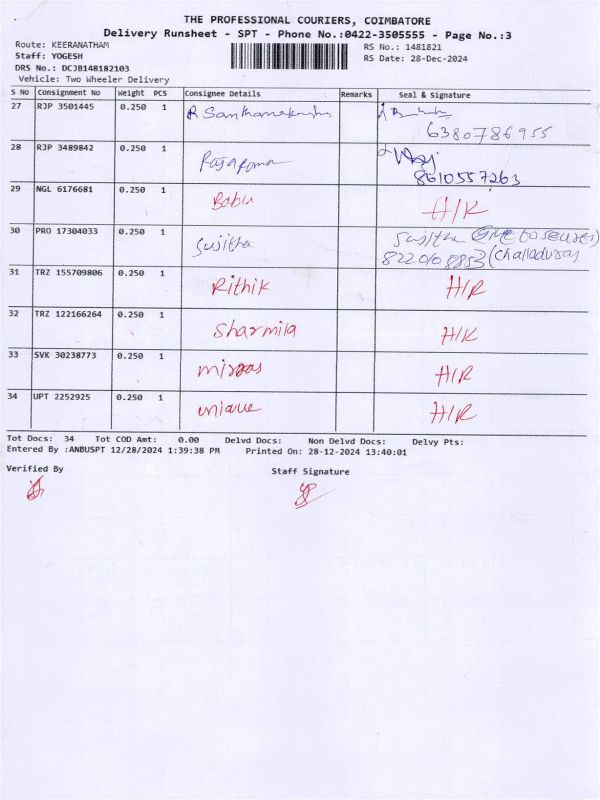 THE PROFESSIONAL COURIERS, COIMBATORE
Delivery Runsheet - SPT - Phone No.:0422-3505555 - Page No.:3
Route: KEERANATHAM RS No.: 1481821
Staff: YOGESH RS Date: 28-Dec-2024
DRS No.: DCJB148182103
Vehicle: Two Wheeler Delivery
S No Consignment No Weight PCS Consignee Details Remarks Seal & Signature
27 RJP 3501445 0.250 1 R
6380786955
28 RJP 3489842 0.250 1
8610557263
29 NGL 6176681 0.250 1 Babu H/R
30 PRO 17304033 0.250 1 Sujitha Sujitha
31 TRZ 155709806 0.250 1 Rithik H/R
32 TRZ 122166264 0.250 1 Sharmila H/R
33 SVK 30238773 0.250 1 H/R
34 UPT 2252925 0.250 1 unique H/R
Tot Docs: 34 Tot COD Amt: 0.00 Delvd Docs: Non Delvd Docs: Delvy Pts:
Entered By :ANBUSPT 12/28/2024 1:39:38 PM Printed On: 28-12-2024 13:40:01
Verified By Staff Signature